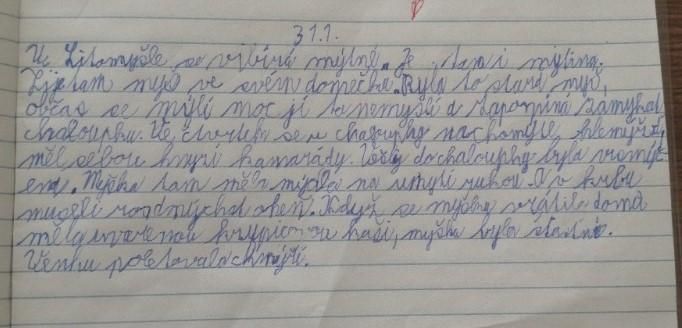 31.1.
U Litomyšle se vibírá mýtné. Je tam i mýtina.
Žije tam myš ve svém domečku. Byla to stará myš,
občas se mýlí moc jí to nemyslí a zapomíná zamykat
chaloupku. Ve čtvrtek se u chaloupky nachomýtl hlemýžď,
měl sebou hmyzí kamarády. Vešli do chaloupky byla
Myška tam měla mýdla na umytí rukou. A v krbu
museli rozdmýchat oheň. Když se myška vrátila domů
měla uvařenou krupicovou kaši, myška byla šťastná.
Venku poletovala chmýří.